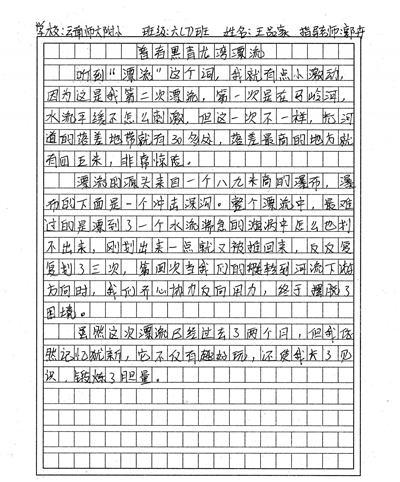 学校:云南师大附小 班级:六(7)班 姓名:王品家 指导老师:郭卉
普者黑青龙湾漂流
听到“漂流”这个词,我就有点小激动,
因为这是我第二次漂流,第一次是在马岭河,
水流平缓不怎么刺激,但这一次不一样,有河
道的落差地带就有30多处,落差最高的地方就
有四五米,非常惊险。
漂流的源头来自一个八九米高的瀑布,瀑
布的下面是一个冲击深沟。整个漂流中,最难
过的是漂到了一个水流湍急的漩涡中怎么也划
不出来,刚划出来一点就又被推回来,反反复
复划了三次,第四次当我们的艇转到河流下游
方向时,我们齐心协力反向用力,终于摆脱了
困境。
虽然这次漂流已经过去了两个月,但我依
然记忆犹新,它不仅有趣好玩,还使我长了见
识,锻炼了胆量。